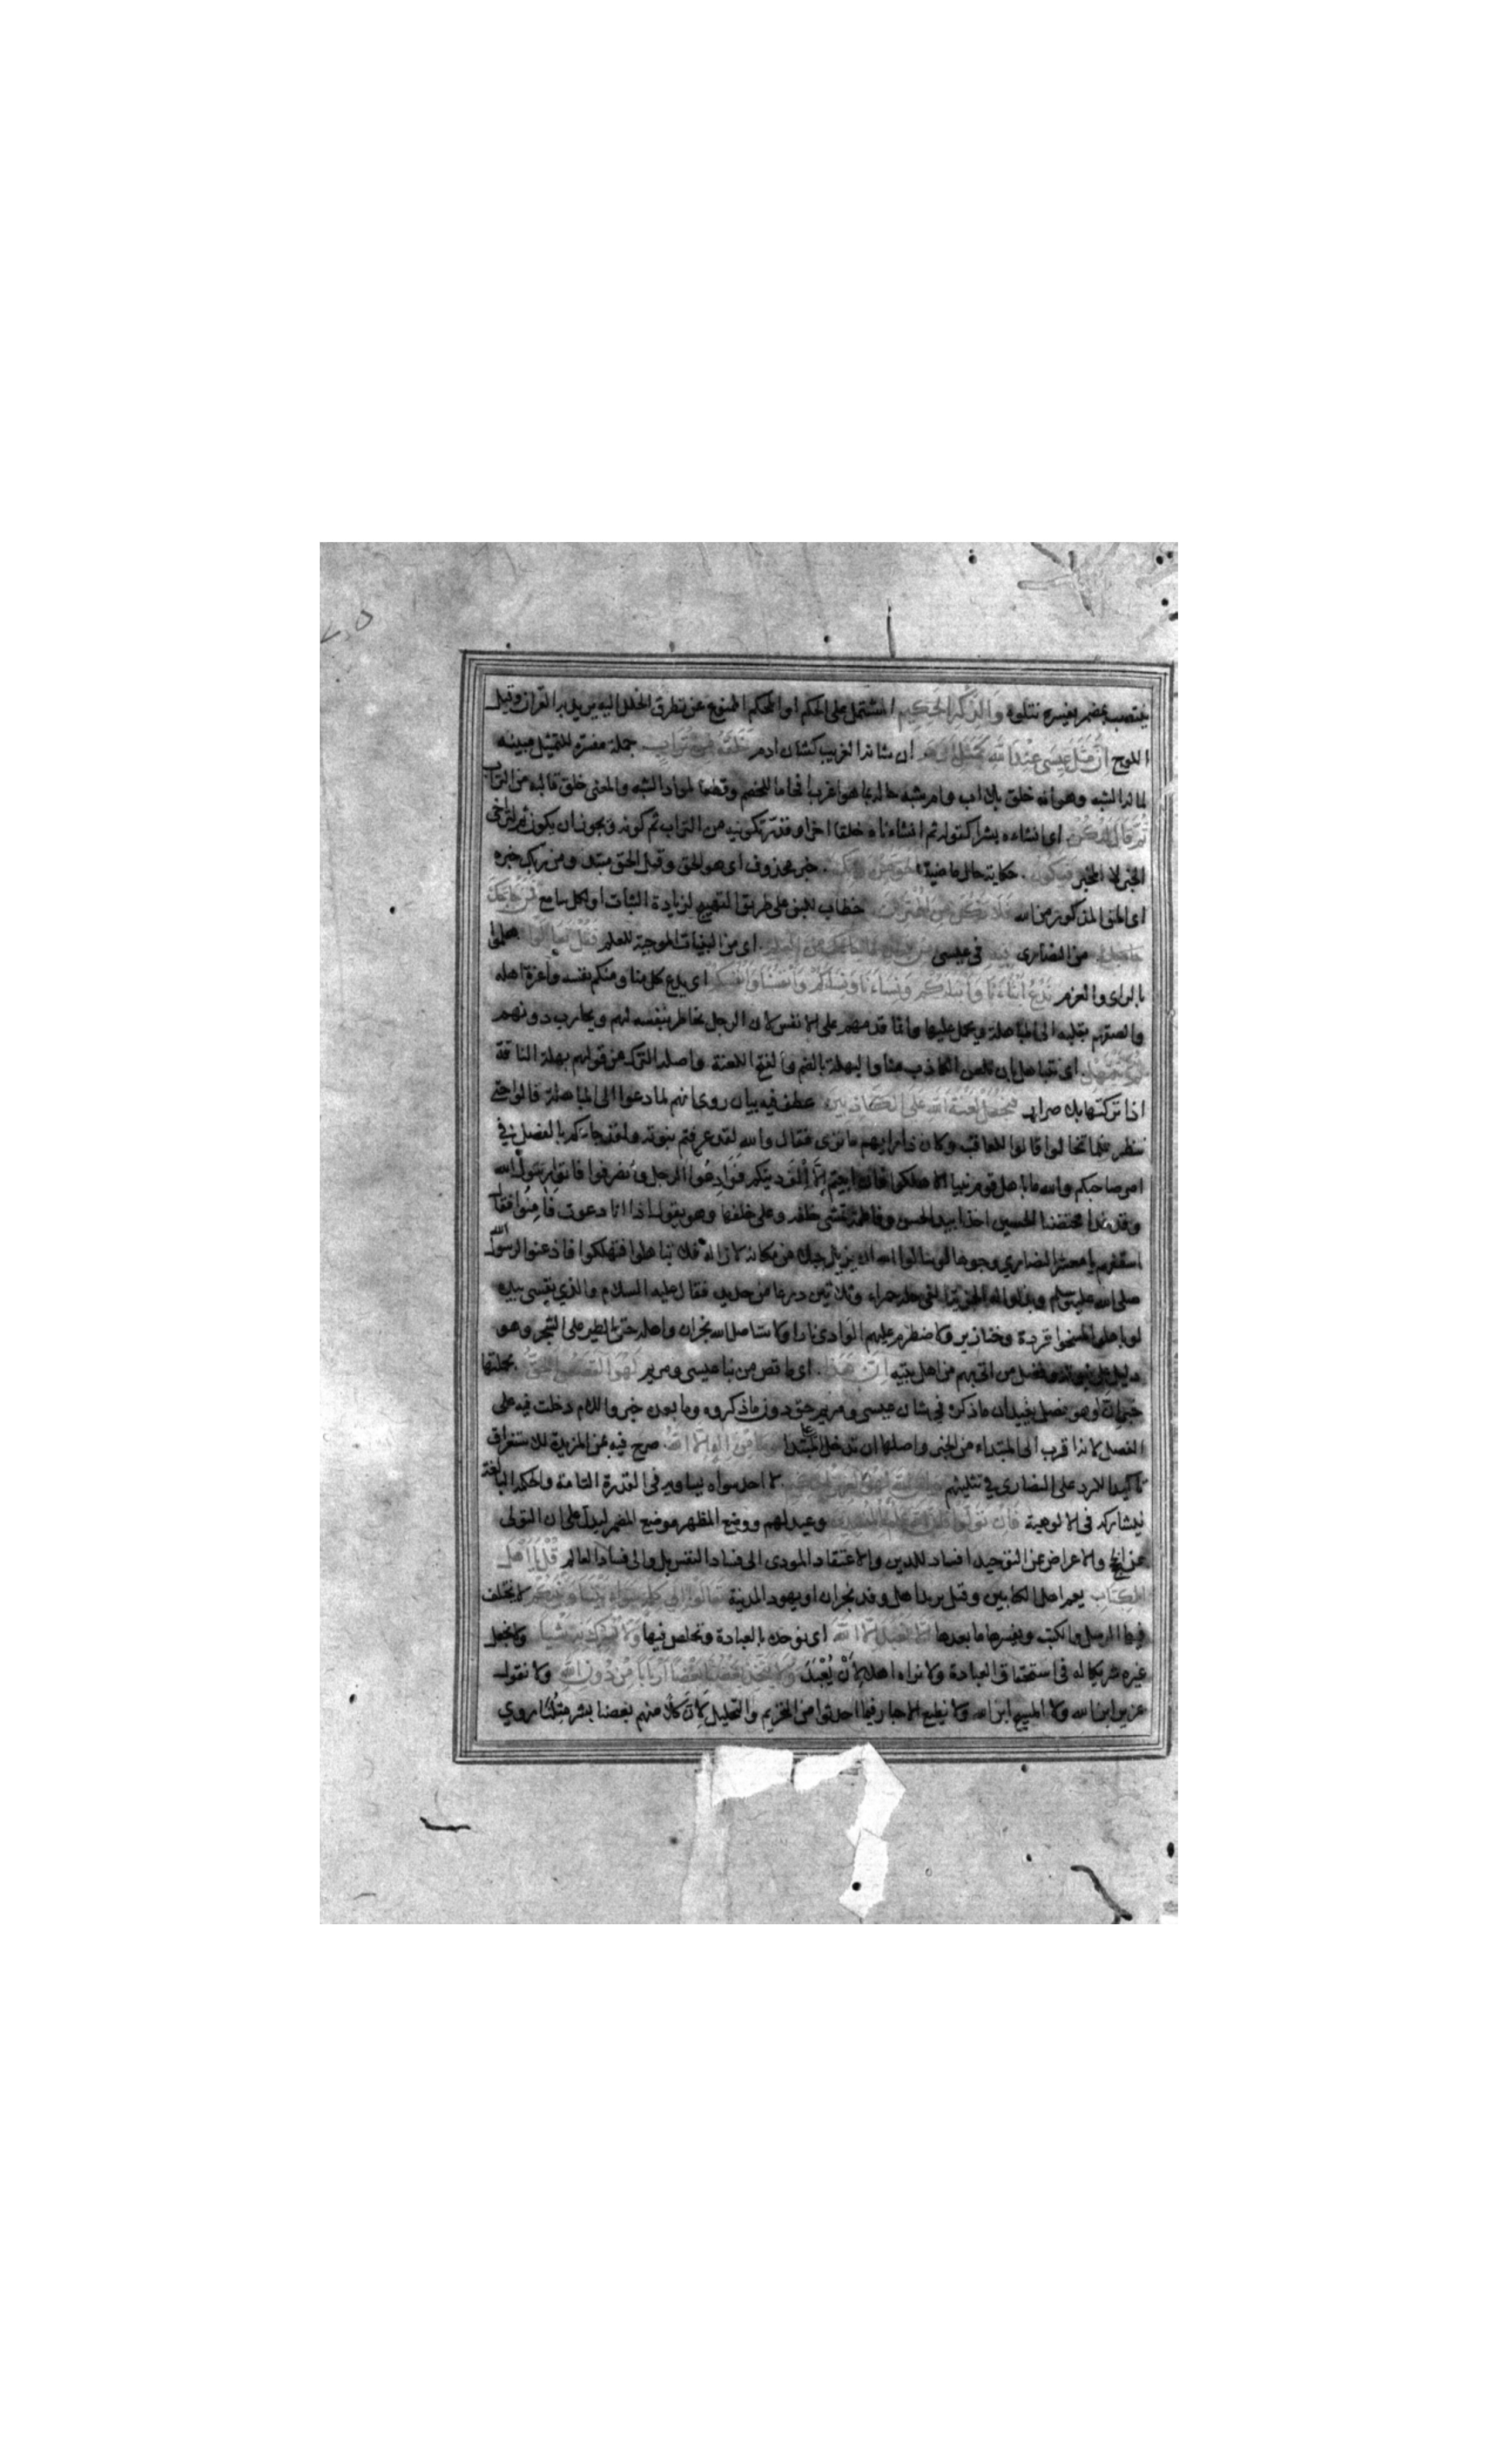 ينتصب بمضمر يفسره نتلوه وَالذِّكْرِ الْحَكِيمِ المشتمل على الحكم او المحكم الممنوع عن تطرق الخلل اليه يريد به القران وقيل
اللوح اِنَّ مَثَلَ عِيسَى عِنْدَ اللَّهِ كَمَثَلِ آدَمَ ان شانه الغريب كشان ادم خَلَقَهُ مِنْ تُرَابٍ جملة مفسرة للتمثيل مبينه
لما له الشبه وهو انه خلق بلا اب وام شبه حاله بما هو اغرب افحاما للخصم وقطعا لمواد الشبه والمعنى خلق قالبه من التراب
ثُمَّ قَالَ لَهُ كُنْ اى انشاءه بشرا كقوله ثم انشاءناه خلقا اخر او قدر تكوينه من التراب ثم كونه ويجوز ان يكون ثم لتراخى
الخبر لا المخبر فَيَكُونُ حكاية حال ماضية الْحَقُّ مِنْ رَبِّكَ خبر محذوف اى هو الحق وقيل الحق مبتدا ومن ربك خبره
اى الحق المذكور من الله فَلَا تَكُنْ مِنَ الْمُمْتَرِينَ خطاب للنبى على طريق التهييج لزيادة الثبات او لكل سامع فَمَنْ حَاجَّكَ
حاجك من النصارى فِيهِ فى عيسى مِنْ بَعْدِ مَا جَاءَكَ مِنَ الْعِلْمِ اى من البينات الموجبة للعلم فَقُلْ تَعَالَوْا هلموا
بالراى والعزم نَدْعُ اَبْنَاءَنَا وَاَبْنَاءَكُمْ وَنِسَاءَنَا وَنِسَاءَكُمْ وَاَنْفُسَنَا وَاَنْفُسَكُمْ اى يدع كل منا ومنكم نفسه واعزة اهله
والصقهم بقلبه الى المباهلة ويحمل عليها وانما قدمهم على الانفس لان الرجل يخاطر بنفسه لهم ويحارب دونهم
ثُمَّ نَبْتَهِلْ اى نتباهل بان نلعن الكاذب منا والبهلة بالضم والفتح اللعنة واصله الترك من قولهم بهلت الناقة
اذا تركتها بلا صرار فَنَجْعَلْ لَعْنَةَ اللَّهِ عَلَى الْكَاذِبِينَ عطف فيه بيان روى انهم لما دعوا الى المباهلة قالوا حتى
ننظر فلما تخالوا قالوا للعاقب وكان ذا رايهم ما ترى فقال والله لقد عرفتم نبوته ولقد جاءكم بالفصل فى
امر صاحبكم والله ما باهل قوم نبيا الا هلكوا فان ابيتم اِلَّا اِلْفَ دينكم فَوَادِعُوا الرجل وانصرفوا فاتوا رسول الله
وقد غدا محتضنا الحسين اخذا بيد الحسن وفاطمة تمشى خلفه وعلى خلفها وهو يقول اذا انا دعوت فَاَمِنُوا فقال
اسقفهم يا معشر النصارى وجوها لو سالوا الله ان يزيل جبلا من مكانه لازاله فلا تباهلوا فتهلكوا فاذعنوا لرسول الله
صلى الله عليه وسلم وبذلوا له الجزية الفى حلة حمراء وثلاثين درعا من حديد فقال عليه السلام والذي نفسى بيده
لو باهلوا لمسخوا قردة وخنازير ولاضطرم عليهم الوادى نارا ولاستاصل الله نجران واهله حتى الطير على الشجر وهو
دليل على نبوته وفضل من اتى بهم من اهل بيته اِنَّ هَذَا اى ما قص من نبا عيسى ومريم لَهُوَ الْقَصَصُ الْحَقُّ بجملتها
خبر ان او هو فصل يفيد ان ما ذكره فى شان عيسى ومريم حق دون ما ذكروه وما بعده خبر واللام دخلت فيه على
الفصل لانه اقرب الى المبتداء من الخبر واصلها ان تدخل على المبتدا وَمَا مِنْ اِلَهٍ اِلَّا اللَّهُ صرح فيه بمن المزيدة للاستغراق
تاكيدا للرد على النصارى فى تثليثهم وَاِنَّ اللَّهَ لَهُوَ الْعَزِيزُ الْحَكِيمُ لا احد سواه يساويه فى القدرة التامة والحكمة البالغة
ليشاركه فى الالوهية فَاِنْ تَوَلَّوْا فَاِنَّ اللَّهَ عَلِيمٌ بِالْمُفْسِدِينَ وعيد لهم ووضع المظهر موضع المضمر ليدل على ان التولى
عن الحجج والاعراض عن التوحيد افساد للدين والاعتقاد المودى الى فساد النفس بل والى فساد العالم قُلْ يَا اَهْلَ
الْكِتَابِ يعم اهل الكتابين وقيل يريد اهل وفد نجران او يهود المدينة تَعَالَوْا اِلَى كَلِمَةٍ سَوَاءٍ بَيْنَنَا وَبَيْنَكُمْ لا يختلف
فيها الرسل والكتب ويفسرها ما بعدها اَلَّا نَعْبُدَ اِلَّا اللَّهَ اى نوحده بالعبادة ونخلص فيها وَلَا نُشْرِكَ بِهِ شَيْئًا ولا نجعل
غيره شريكا له فى استحقاق العبادة ولا نراه اهلا لِاَنْ يُعْبَدَ وَلَا يَتَّخِذَ بَعْضُنَا بَعْضًا اَرْبَابًا مِنْ دُونِ اللَّهِ ولا نقول
عزير ابن الله ولا المسيح ابن الله ولا نطيع الاحبار فيما احدثوا من التحريم والتحليل لاِنَّ كُلًّا منهم بعضنا بشر مِثْلُنَا روي